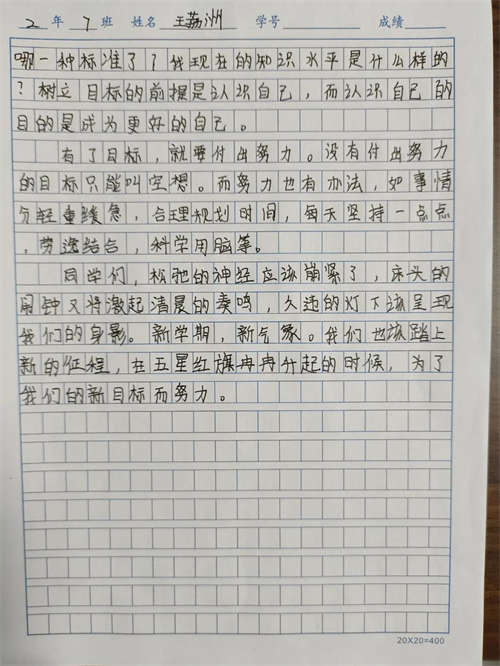 2 年 7 班 姓名 王荔洲 学号 成绩
哪一种标准了？我现在的知识水平是什么样的
？树立目标的前提是认识自己，而认识自己的
目的是成为更好的自己。
有了目标，就要付出努力。没有付出努力
的目标只能叫空想。而努力也有办法，如事情
分轻重缓急，合理规划时间，每天坚持一点点
，劳逸结合，科学用脑等。
同学们，松弛的神经应该崩紧了，床头的
闹钟又将激起清晨的奏鸣，久违的灯下该呈现
我们的身影。新学期，新气象。我们也该踏上
新的征程，在五星红旗冉冉升起的时候，为了
我们的新目标而努力。
20X20=400